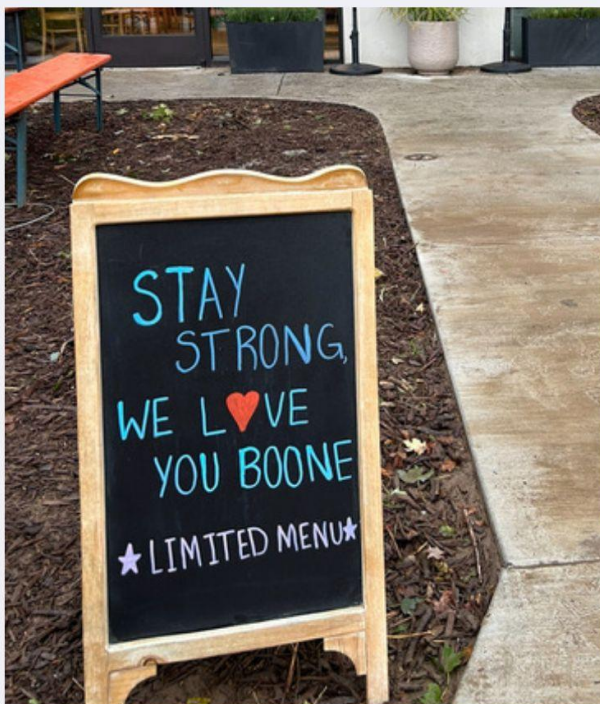 STAY
STRONG,
WE L♥VE
YOU BOONE
★LIMITED MENU★